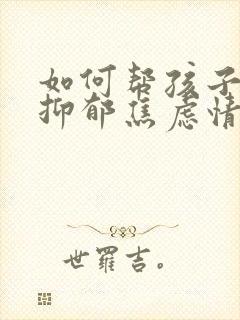 如何帮孩子
抑郁焦虑情
世罗吉。